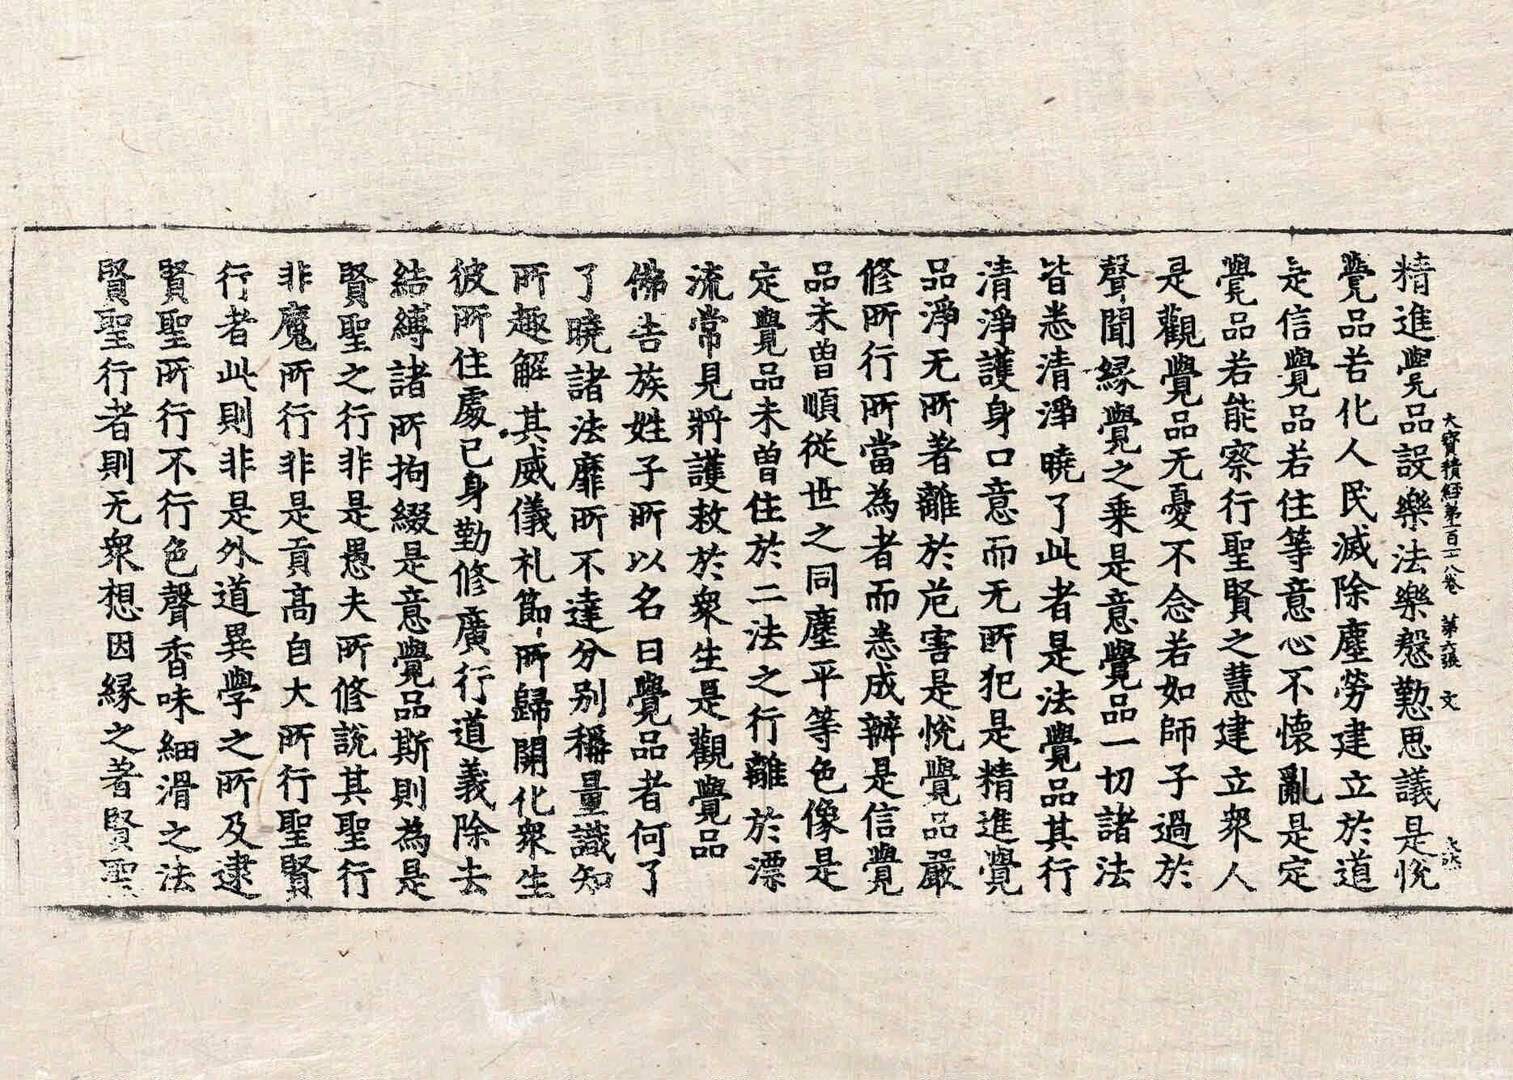 大寶積經第一百一十八卷　第六張　文
精進覺品設樂法樂慇懃思議是悅
覺品若化人民滅除塵勞建立於道
是信覺品若住等意心不懷亂是定
覺品若能察行聖賢之慧建立衆人
是觀覺品无憂不念若如師子過於
聲聞緣覺之乗是意覺品一切諸法
皆悉清淨曉了此者是法覺品其行
清淨護身口意而无所犯是精進覺
品淨无所著離於危害是悅覺品嚴
修所行所當為者而悉成辦是信覺
品未曾順從世之同塵平等色像是
定覺品未曾住於二法之行離於漂
流常見將護救於衆生是觀覺品
佛告族姓子所以名曰覺品者何了
了曉諸法靡所不達分別稱量識知
所趣解其威儀礼節所歸開化衆生
彼所住處已身勤修廣行道義除去
結縛諸所拘綴是意覺品斯則為是
賢聖之行非是愚夫所修說其聖行
非魔所行非是貢高自大所行聖賢
行者此則非是外道異學之所及逮
賢聖所行不行色聲香味細滑之法
賢聖行者則无衆想因緣之著賢聖